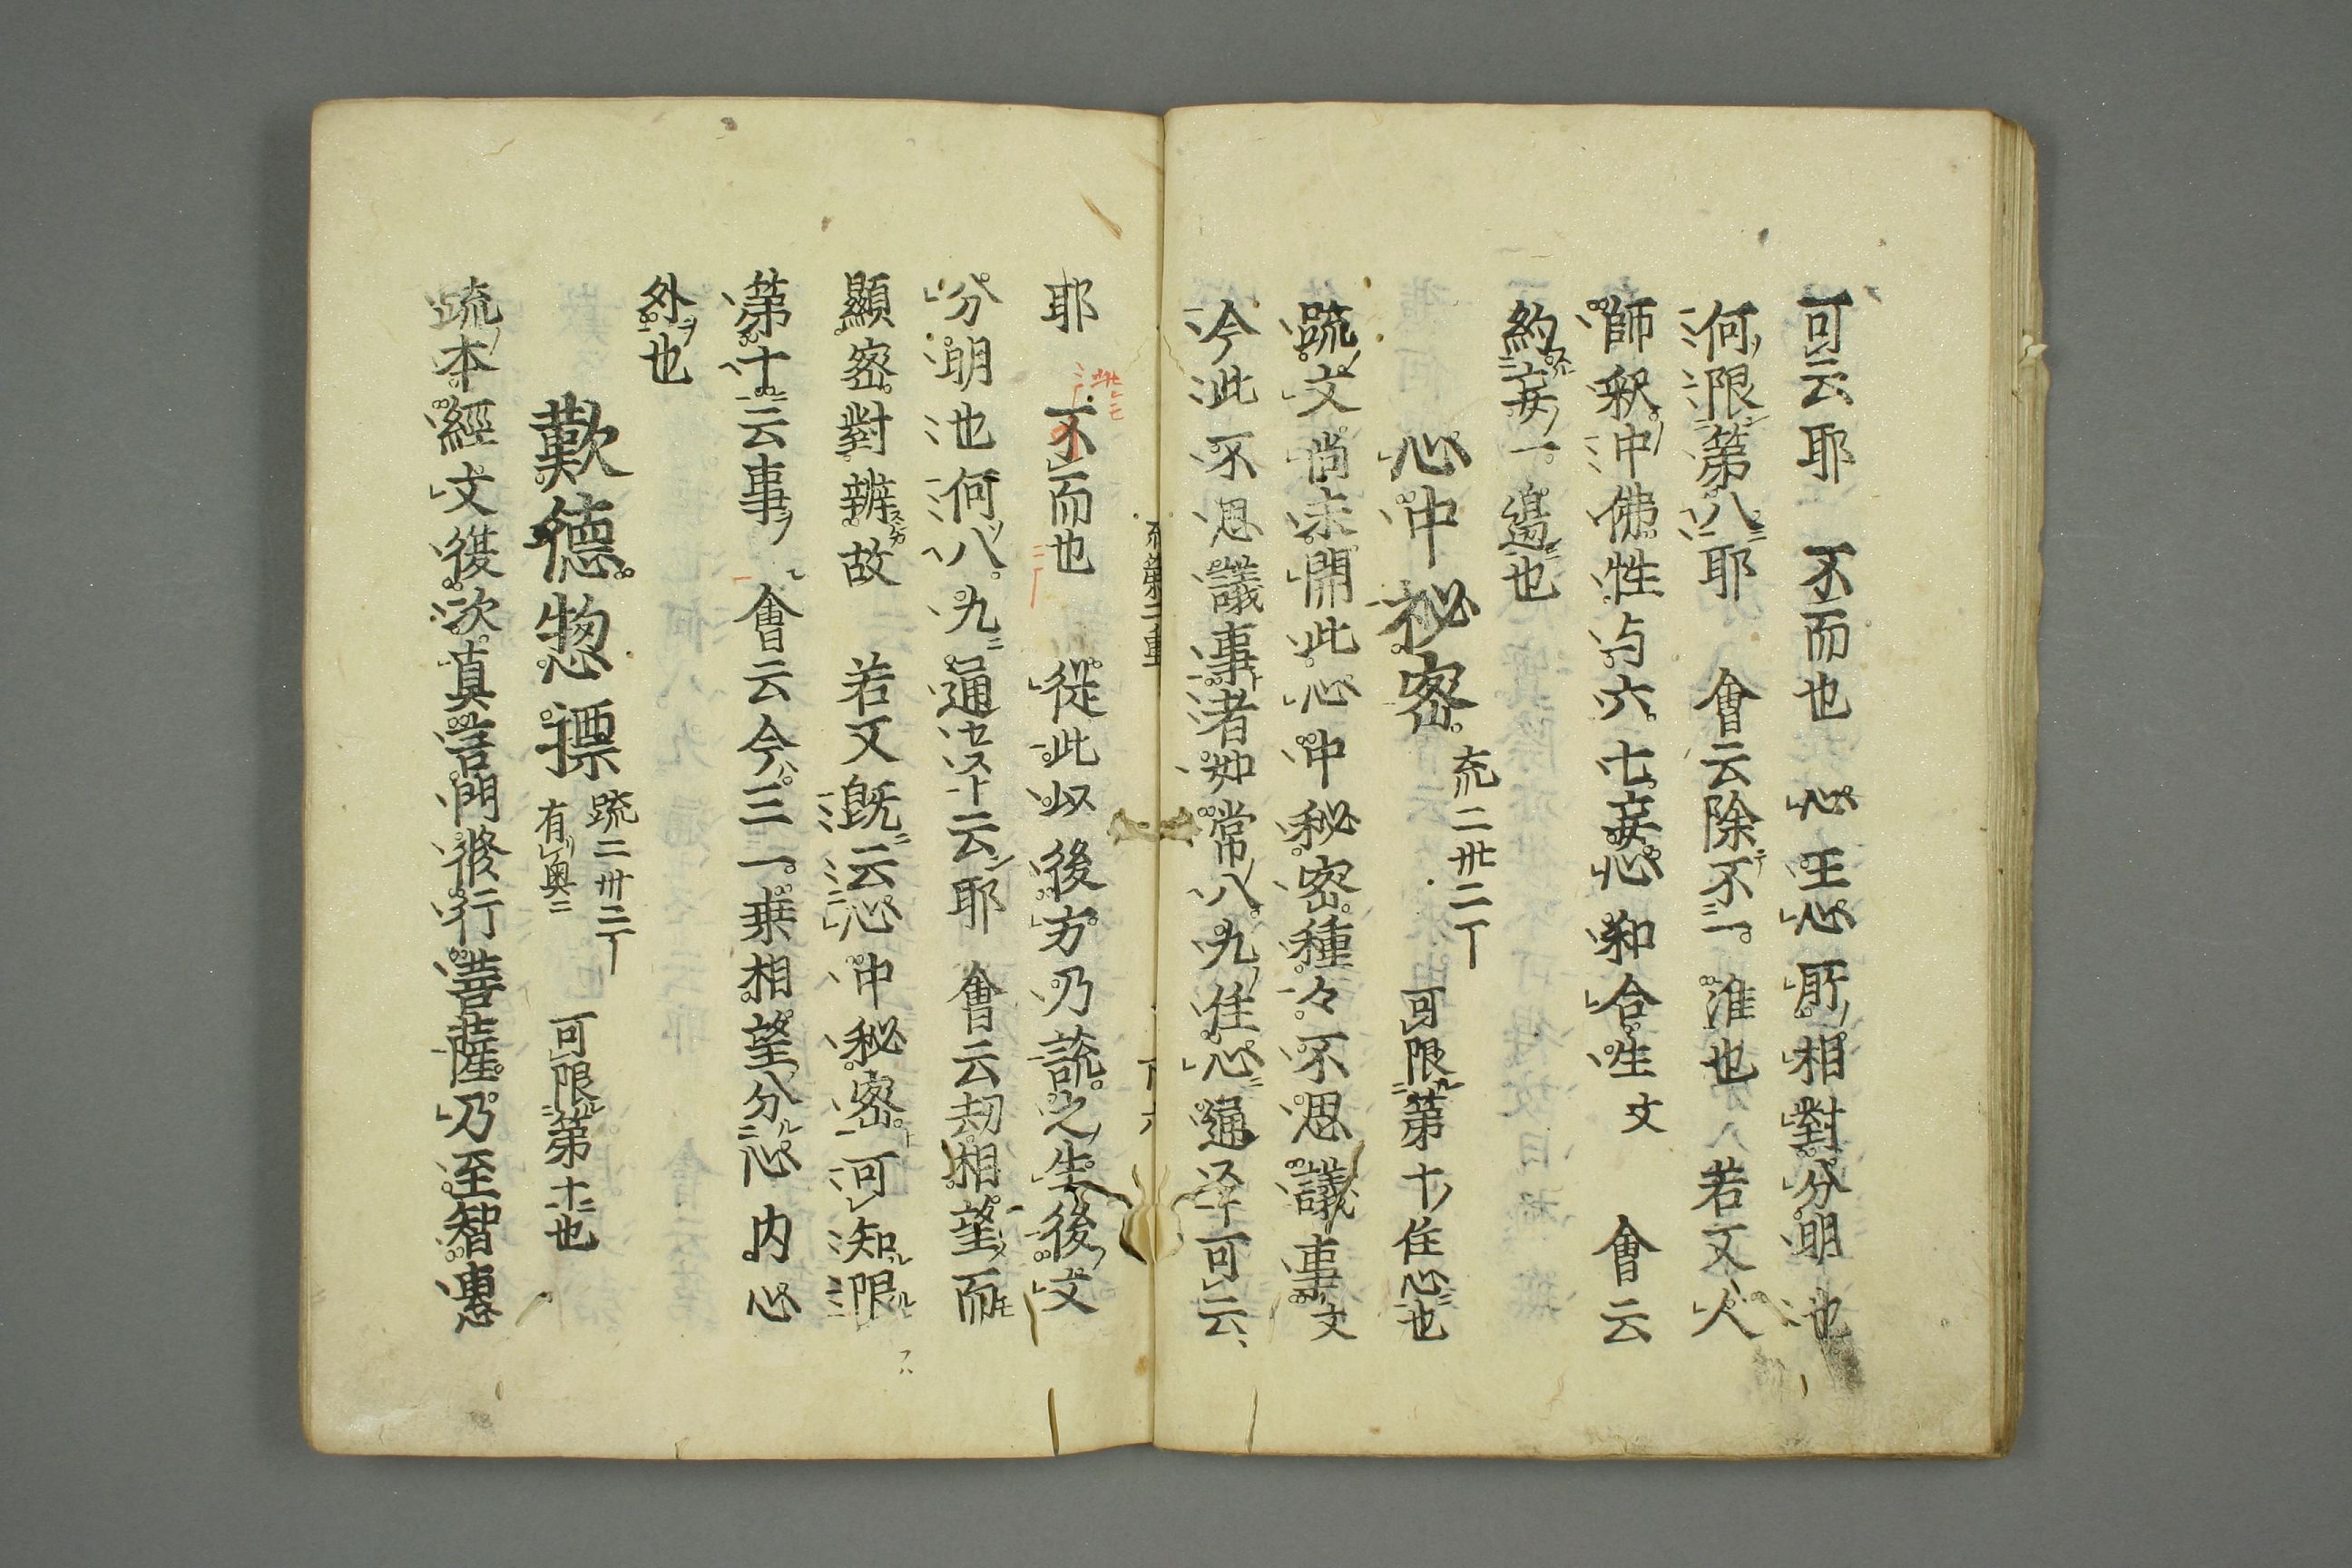 可云耶 不而也 心王心所相對分明也
何限第八耶 會云除不一准也 若又人
師釈中佛性与六七妄心和合生文 會云
約妄一邊也
心中祕密 䟽二卅二丁 可限第十住心也
䟽文尚未開此心中秘密種々不思議事文
今此不思議事者如常八九住心通㆑可云
耶 不而也 從此以後方乃説之生後文
分明也何八九通云耶 會云劫相望而
顯密對辨故 若又既云心中秘密可知限
第十云事 會云今三一乗相望分心内心
外也
歎徳惣標 䟽二卅二丁 有奥 可限第十也
䟽本經文復次真言門修行菩薩乃至智惠